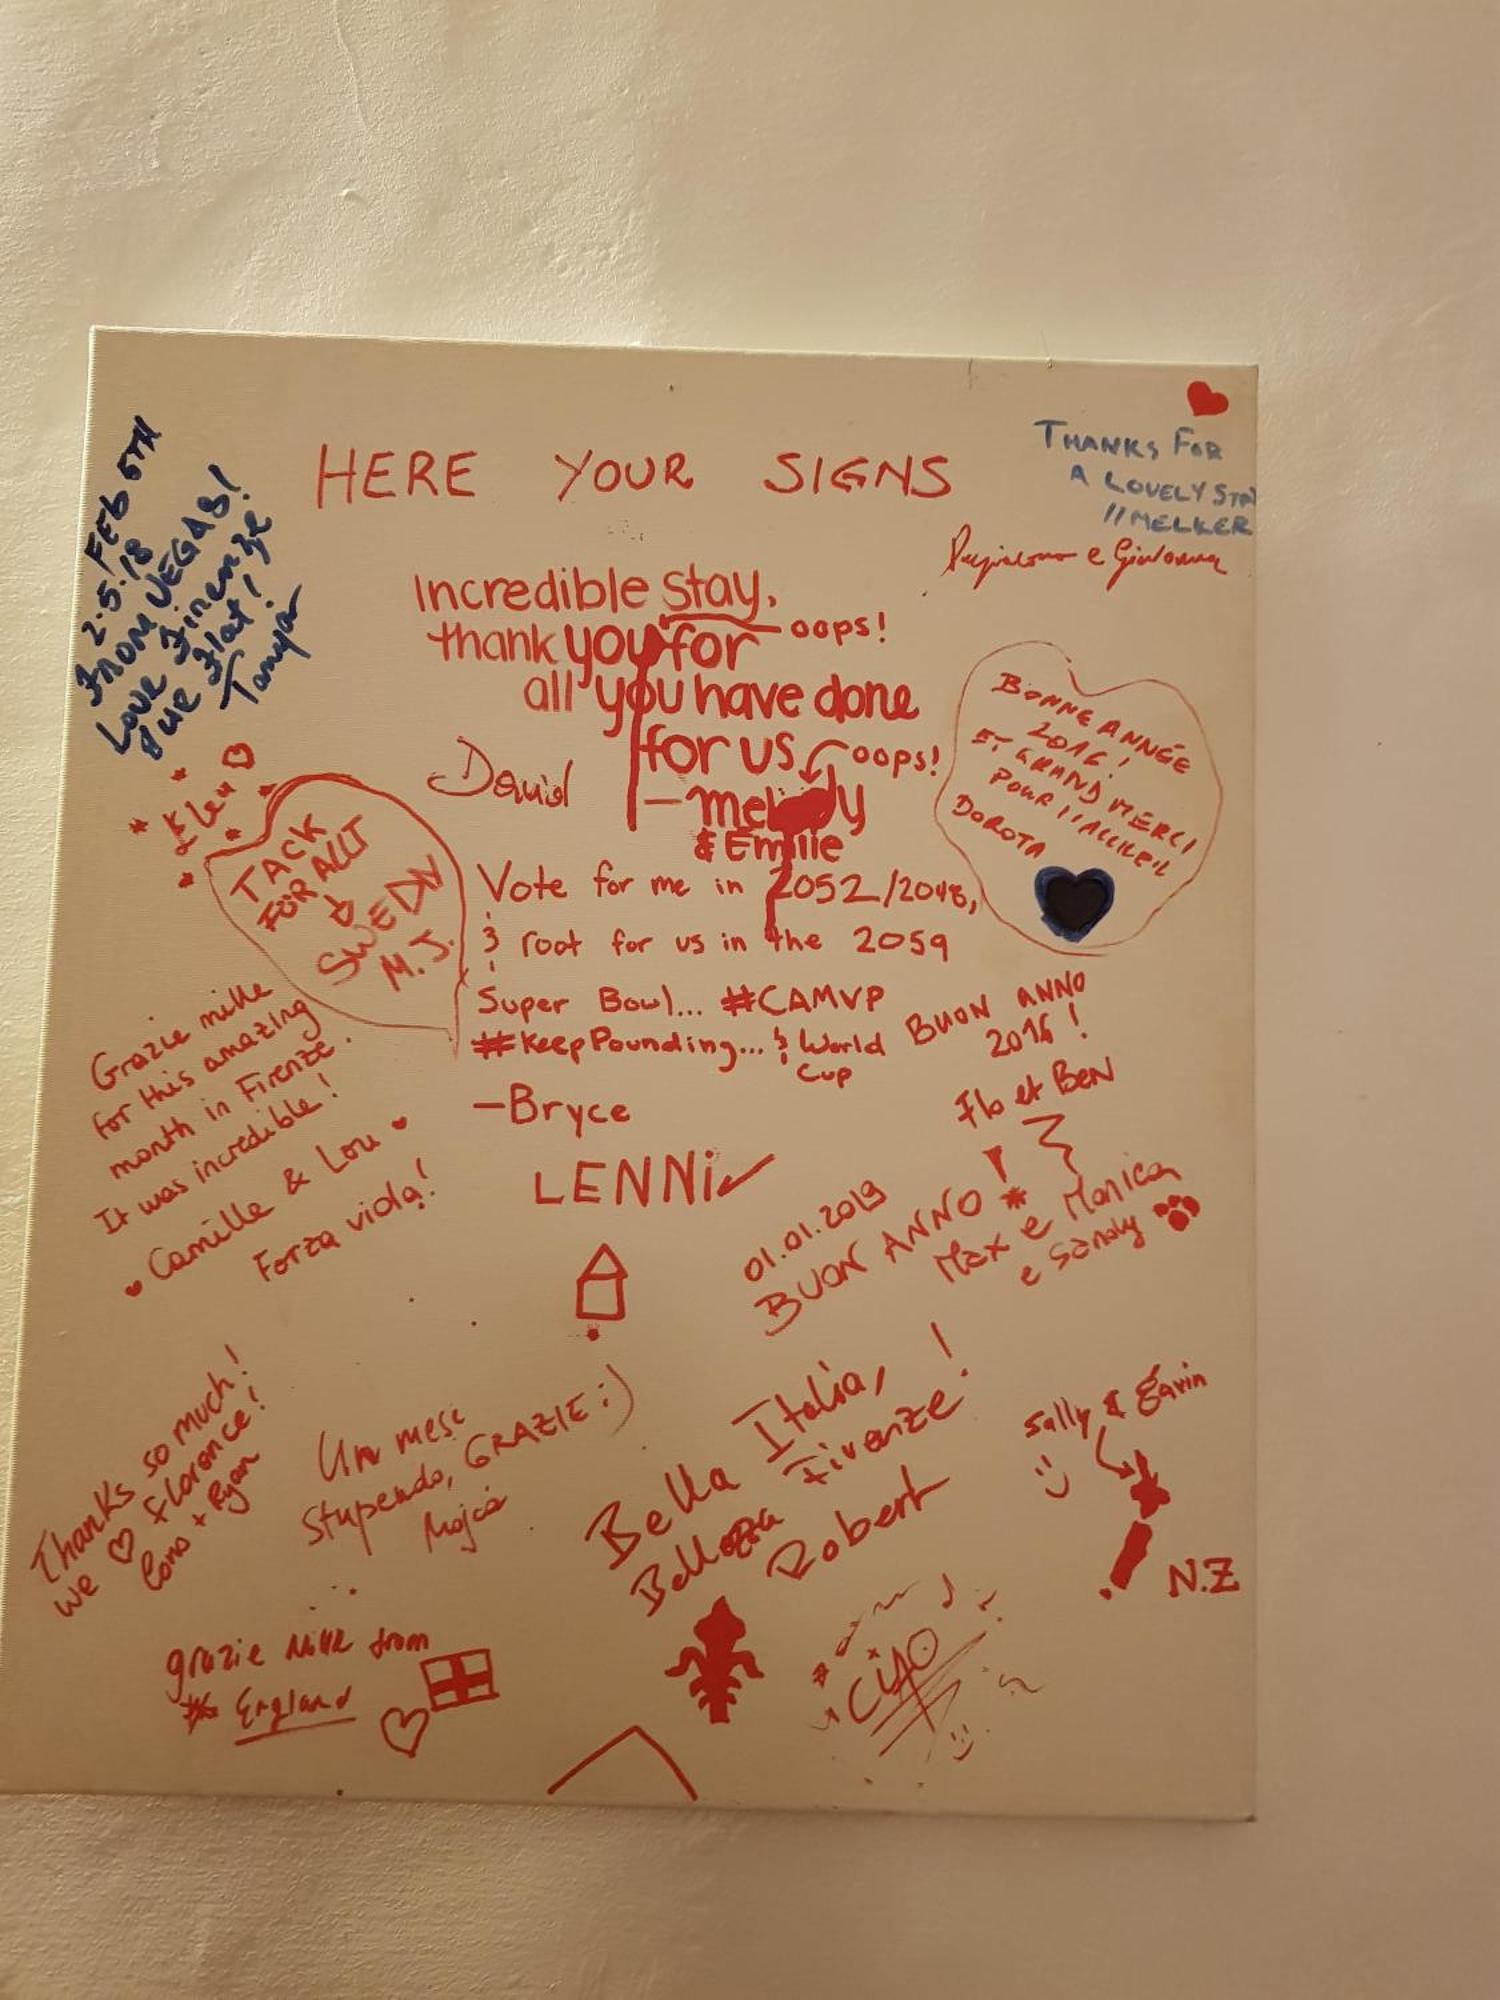 HERE YOUR SIGNS
FEB 5TH
2.5.18
FROM VEGAS!
Love Firenze
Tanya
THANKS FOR
A LOVELY STAY
//MELKER
e Giovanna
Incredible stay,
thank you for
oops!
all you have done
for us
oops!
- melody
& Emilie
David
BONNE ANNÉE
2016!
ET GRAND MERCI
POUR l'ACCUEIL
DOROTA
Elen
TACK
FÖR ALLT
SWEDEN
M.J.
Vote for me in 2052/2048,
& root for us in the 2059
Super Bowl... #CAMVP
#KeepPounding... & World
Cup
-Bryce
BUON ANNO
2016!
Flo et BEN
Grazie mille
for this amazing
month in Firenze.
It was incredible!
Camille & Lou
Forza viola!
LENNi
01.01.2019
BUON ANNO!
Max e Monica
e Sandy
Thanks so much!
we florence!
+ Ryan
Un mese
stupendo, GRAZIE :)
Mojca
Bella Italia,
Bellezza Firenze!
Robert
Sally & Gavin
N.Z
grazie mille from
England
CIAO